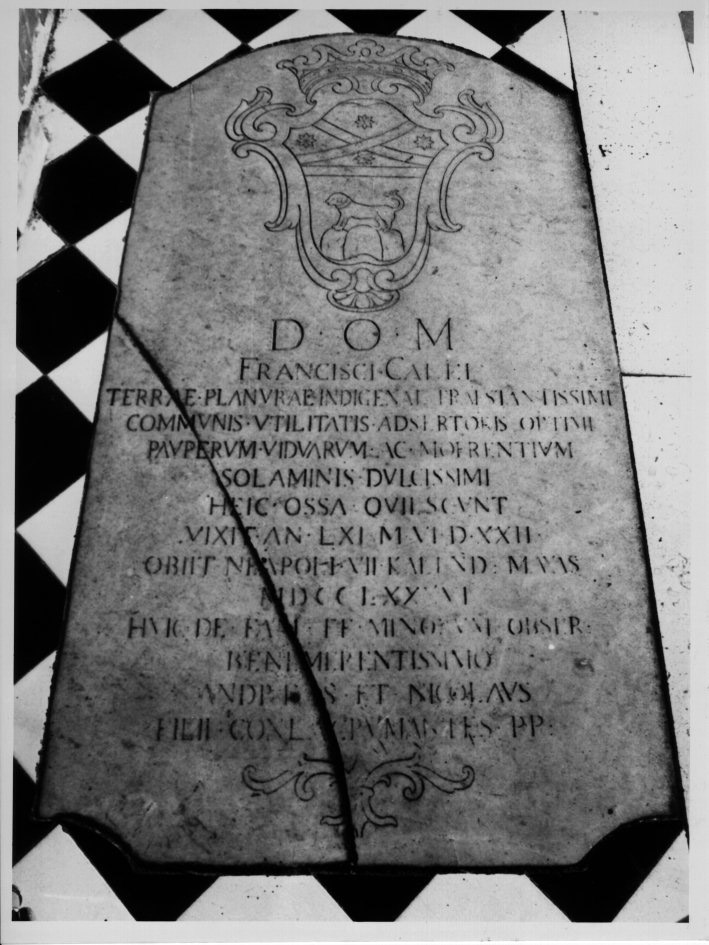 D·O·M
FRANCISCI·CALEI
TERRAE·PLANVRAE·INDIGENAE PRAESTANTISSIMI
COMMVNIS·VTILITATIS·ADSERTORIS OPTIMI
PAVPERVM·VIDVARVM·AC·MOERENTIVM
SOLAMINIS·DVLCISSIMI
HEIC·OSSA QVIESCVNT
VIXIT·AN·LXI·M·VI·D·XXII·
OBIIT NEAPOLI·VII·KALEND·
HVIC·DE ET OBSER·
BENEMERENTISSIMO
ANDREAS·ET·NICOLAVS
FILII PP·